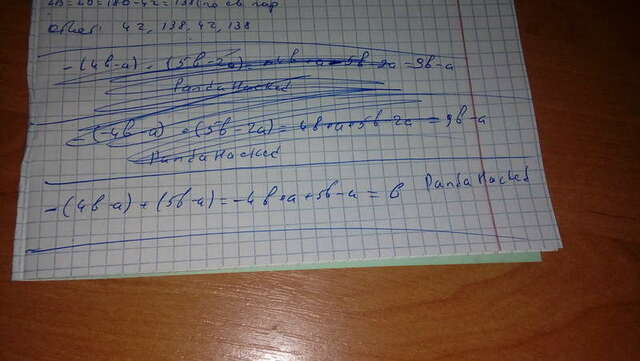 Ответ: 42, 138, 42, 138
-(4b-a) - (5b-2a) = 4b = 9b-a
PandaHacked
-(-4b-a) + (5b-2a) = 4b+a+5b-2a = 9b-a
PandaHacked
-(4b-a) + (5b-a) = -4b+a+5b-a = b PandaHacked